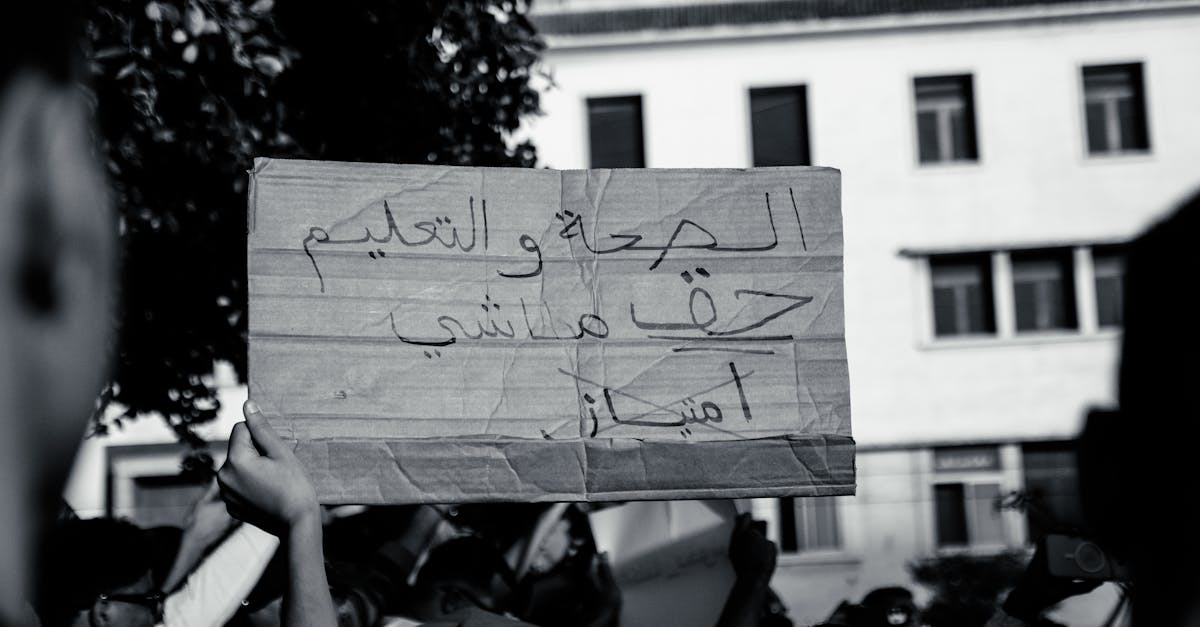 الصحة والتعليم
حق ماشي
امتياز